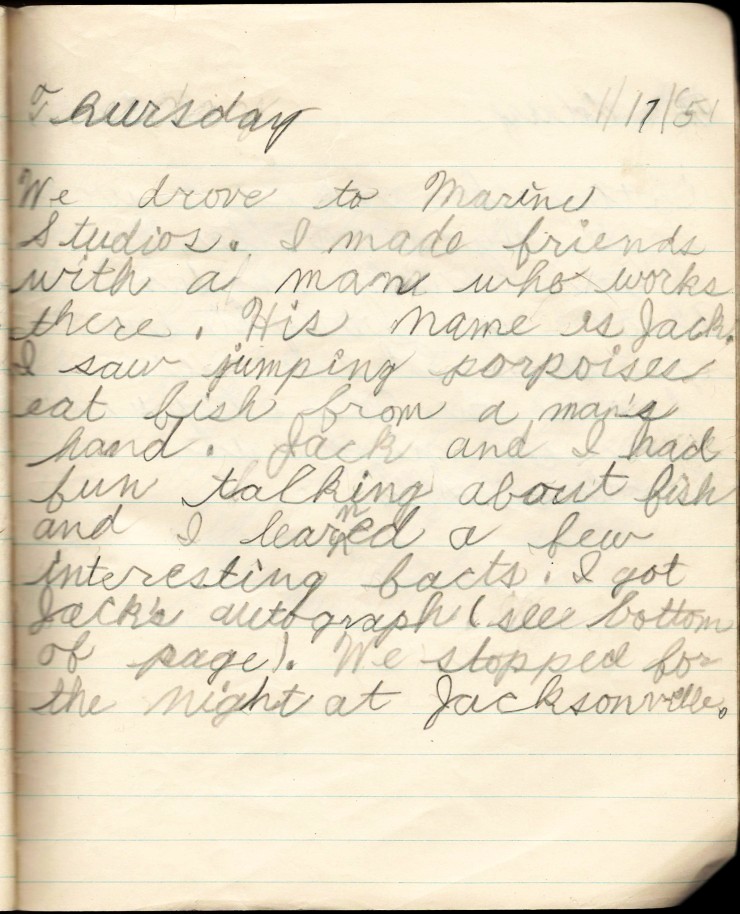 Thursday 1/17/51
We drove to Marine
Studios. I made friends
with a man who works
there. His name is Jack.
I saw jumping porpoises
eat fish from a man's
hand. Jack and I had
fun talking about fish
and I learned a few
interesting facts. I got
Jack's autograph (see bottom
of page). We stopped for
the night at Jacksonville.